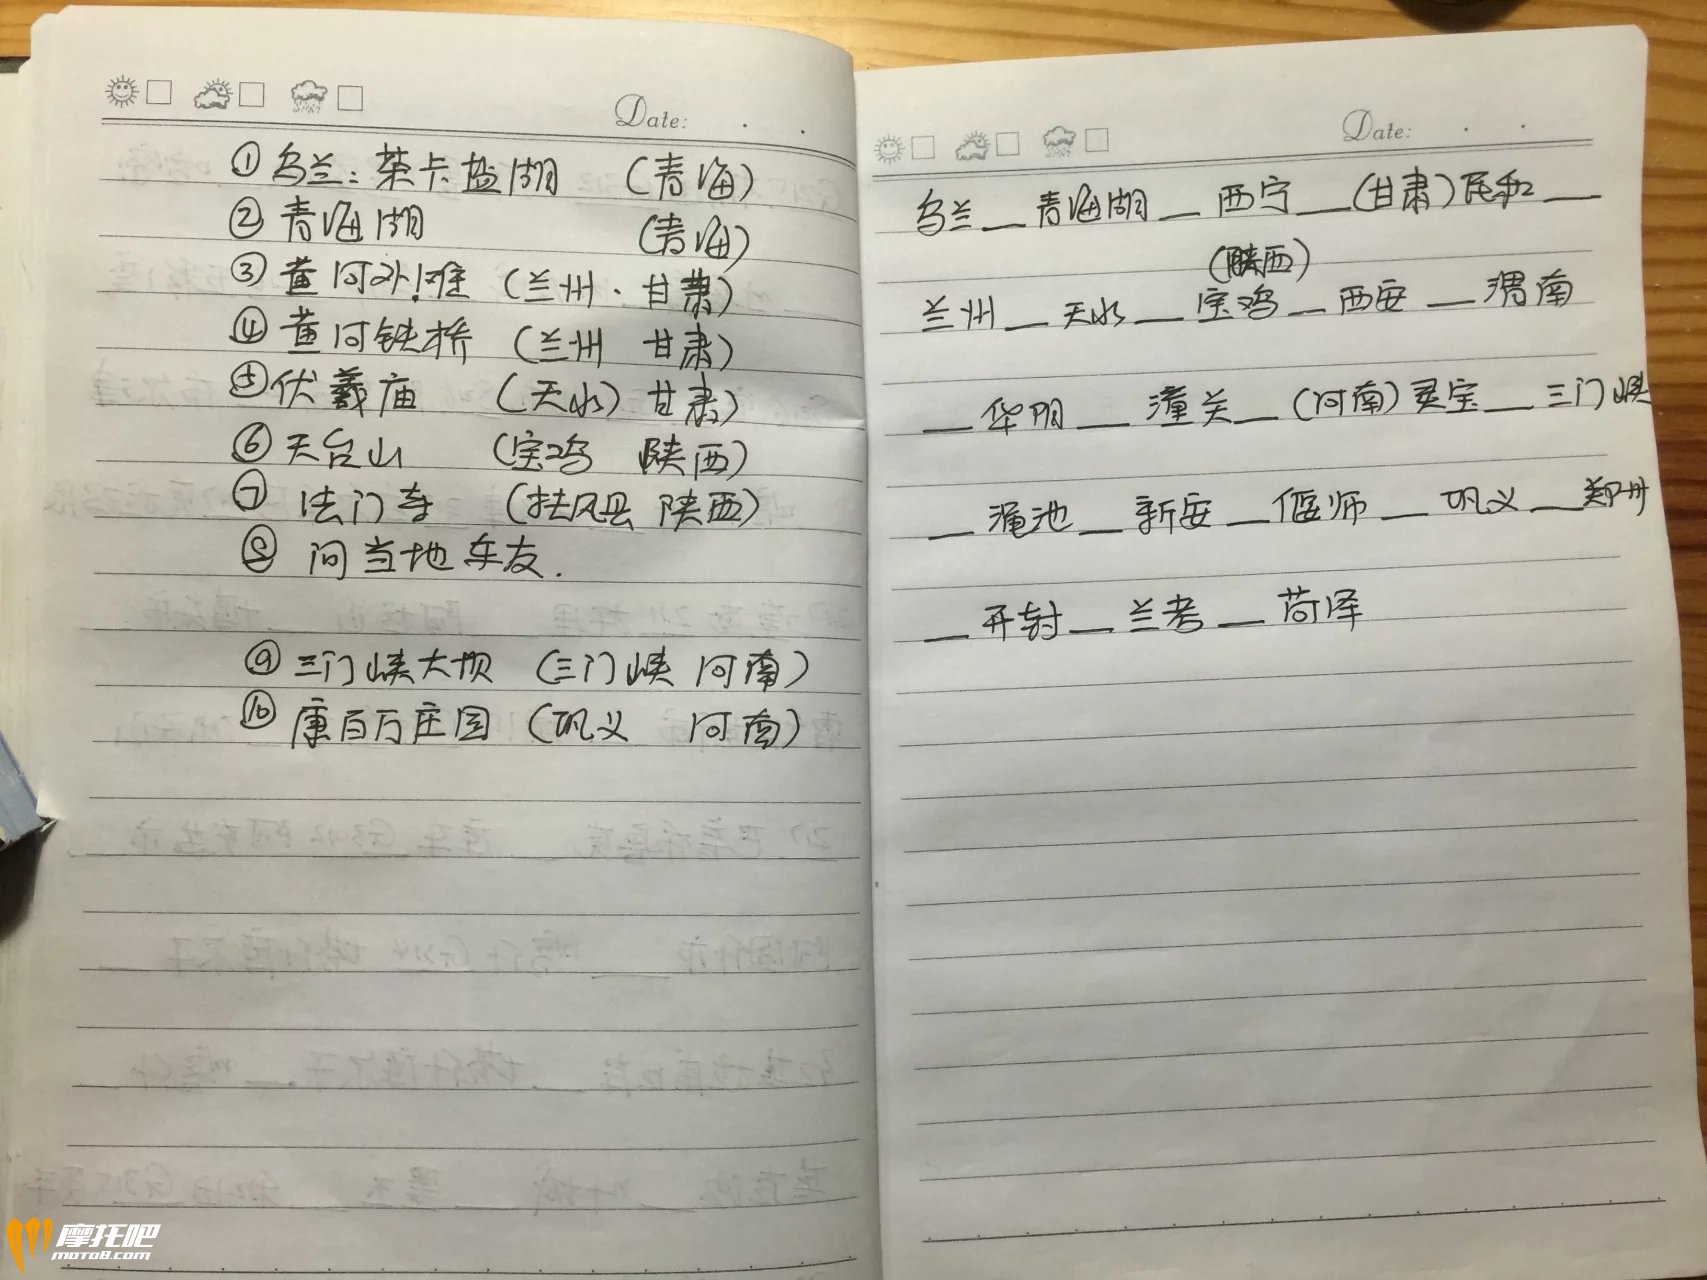 Date:
①乌兰：茶卡盐湖 （青海）
②青海湖 （青海）
③黄河外滩（兰州·甘肃）
④黄河铁桥（兰州 甘肃）
⑤伏羲庙 （天水）甘肃）
⑥天台山 （宝鸡 陕西）
⑦法门寺 （扶风县 陕西）
⑧问当地车友.
⑨三门峡大坝（三门峡 河南）
⑩康百万庄园（巩义 河南）
摩托吧
moto8.com
Date:
乌兰__青海湖__西宁__（甘肃）民和__
（陕西）
兰州__天水__宝鸡__西安__渭南
__华阴__潼关__（河南）灵宝__三门峡
__渑池__新安__偃师__巩义__郑州
__开封__兰考__菏泽